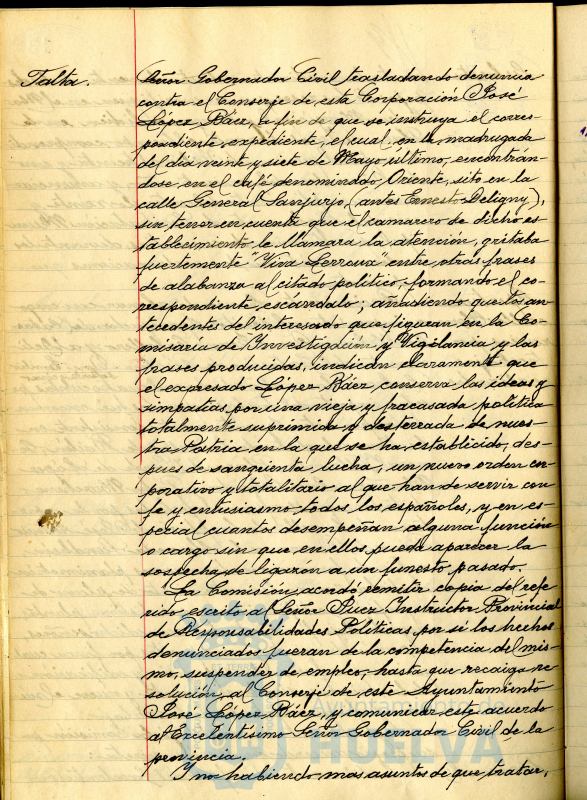 Falta.
Señor Gobernador Civil trasladando denuncia
contra el Conserje de esta Corporación José
López Báez, a fin de que se instruya el corres-
pondiente expediente, el cual, en la madrugada
del dia veinte y siete de Mayo último, encontrán-
dose, en el café denominado Oriente, sito en la
calle General Sanjurjo, (antes Ernesto Deligny),
sin tener en cuenta que el camarero de dicho es-
tablecimiento le llamara la atención, gritaba
fuertemente "Viva Lerroux" entre otras frases
de alabanza al citado político, formando el co-
rrespondiente escandalo; añadiendo que los an-
tecedentes del interesado que figuran en la Co-
misaría de Investigación y Vigilancia y las
frases producidas, indican claramente que
el expresado López Báez, conserva las ideas y
simpatias por una vieja y fracasada política
totalmente suprimida y desterrada de nues-
tra Patria en la que se ha establecido, des-
pues de sangrienta lucha, un nuevo orden cor-
porativo y totalitario al que han de servir con
fe y entusiasmo todos los españoles, y en es-
pecial cuantos desempeñan alguna función
o cargo sin que en ellos pueda aparecer la
sospecha de ligazón a un funesto pasado.
La Comisión acordó remitir copia del refe-
rido escrito al Señor Juez Instructor Provincial
de Responsabilidades Políticas, por si los hechos
denunciados fueran de la competencia del mis-
mo, suspender de empleo, hasta que recaiga re-
solución, al Conserje de este Ayuntamiento
José López Báez, y comunicar este acuerdo
al Excelentísimo Señor Gobernador Civil de la
provincia.
Y no habiendo mas asuntos de que tratar,
Ayuntamiento de
HUELVA